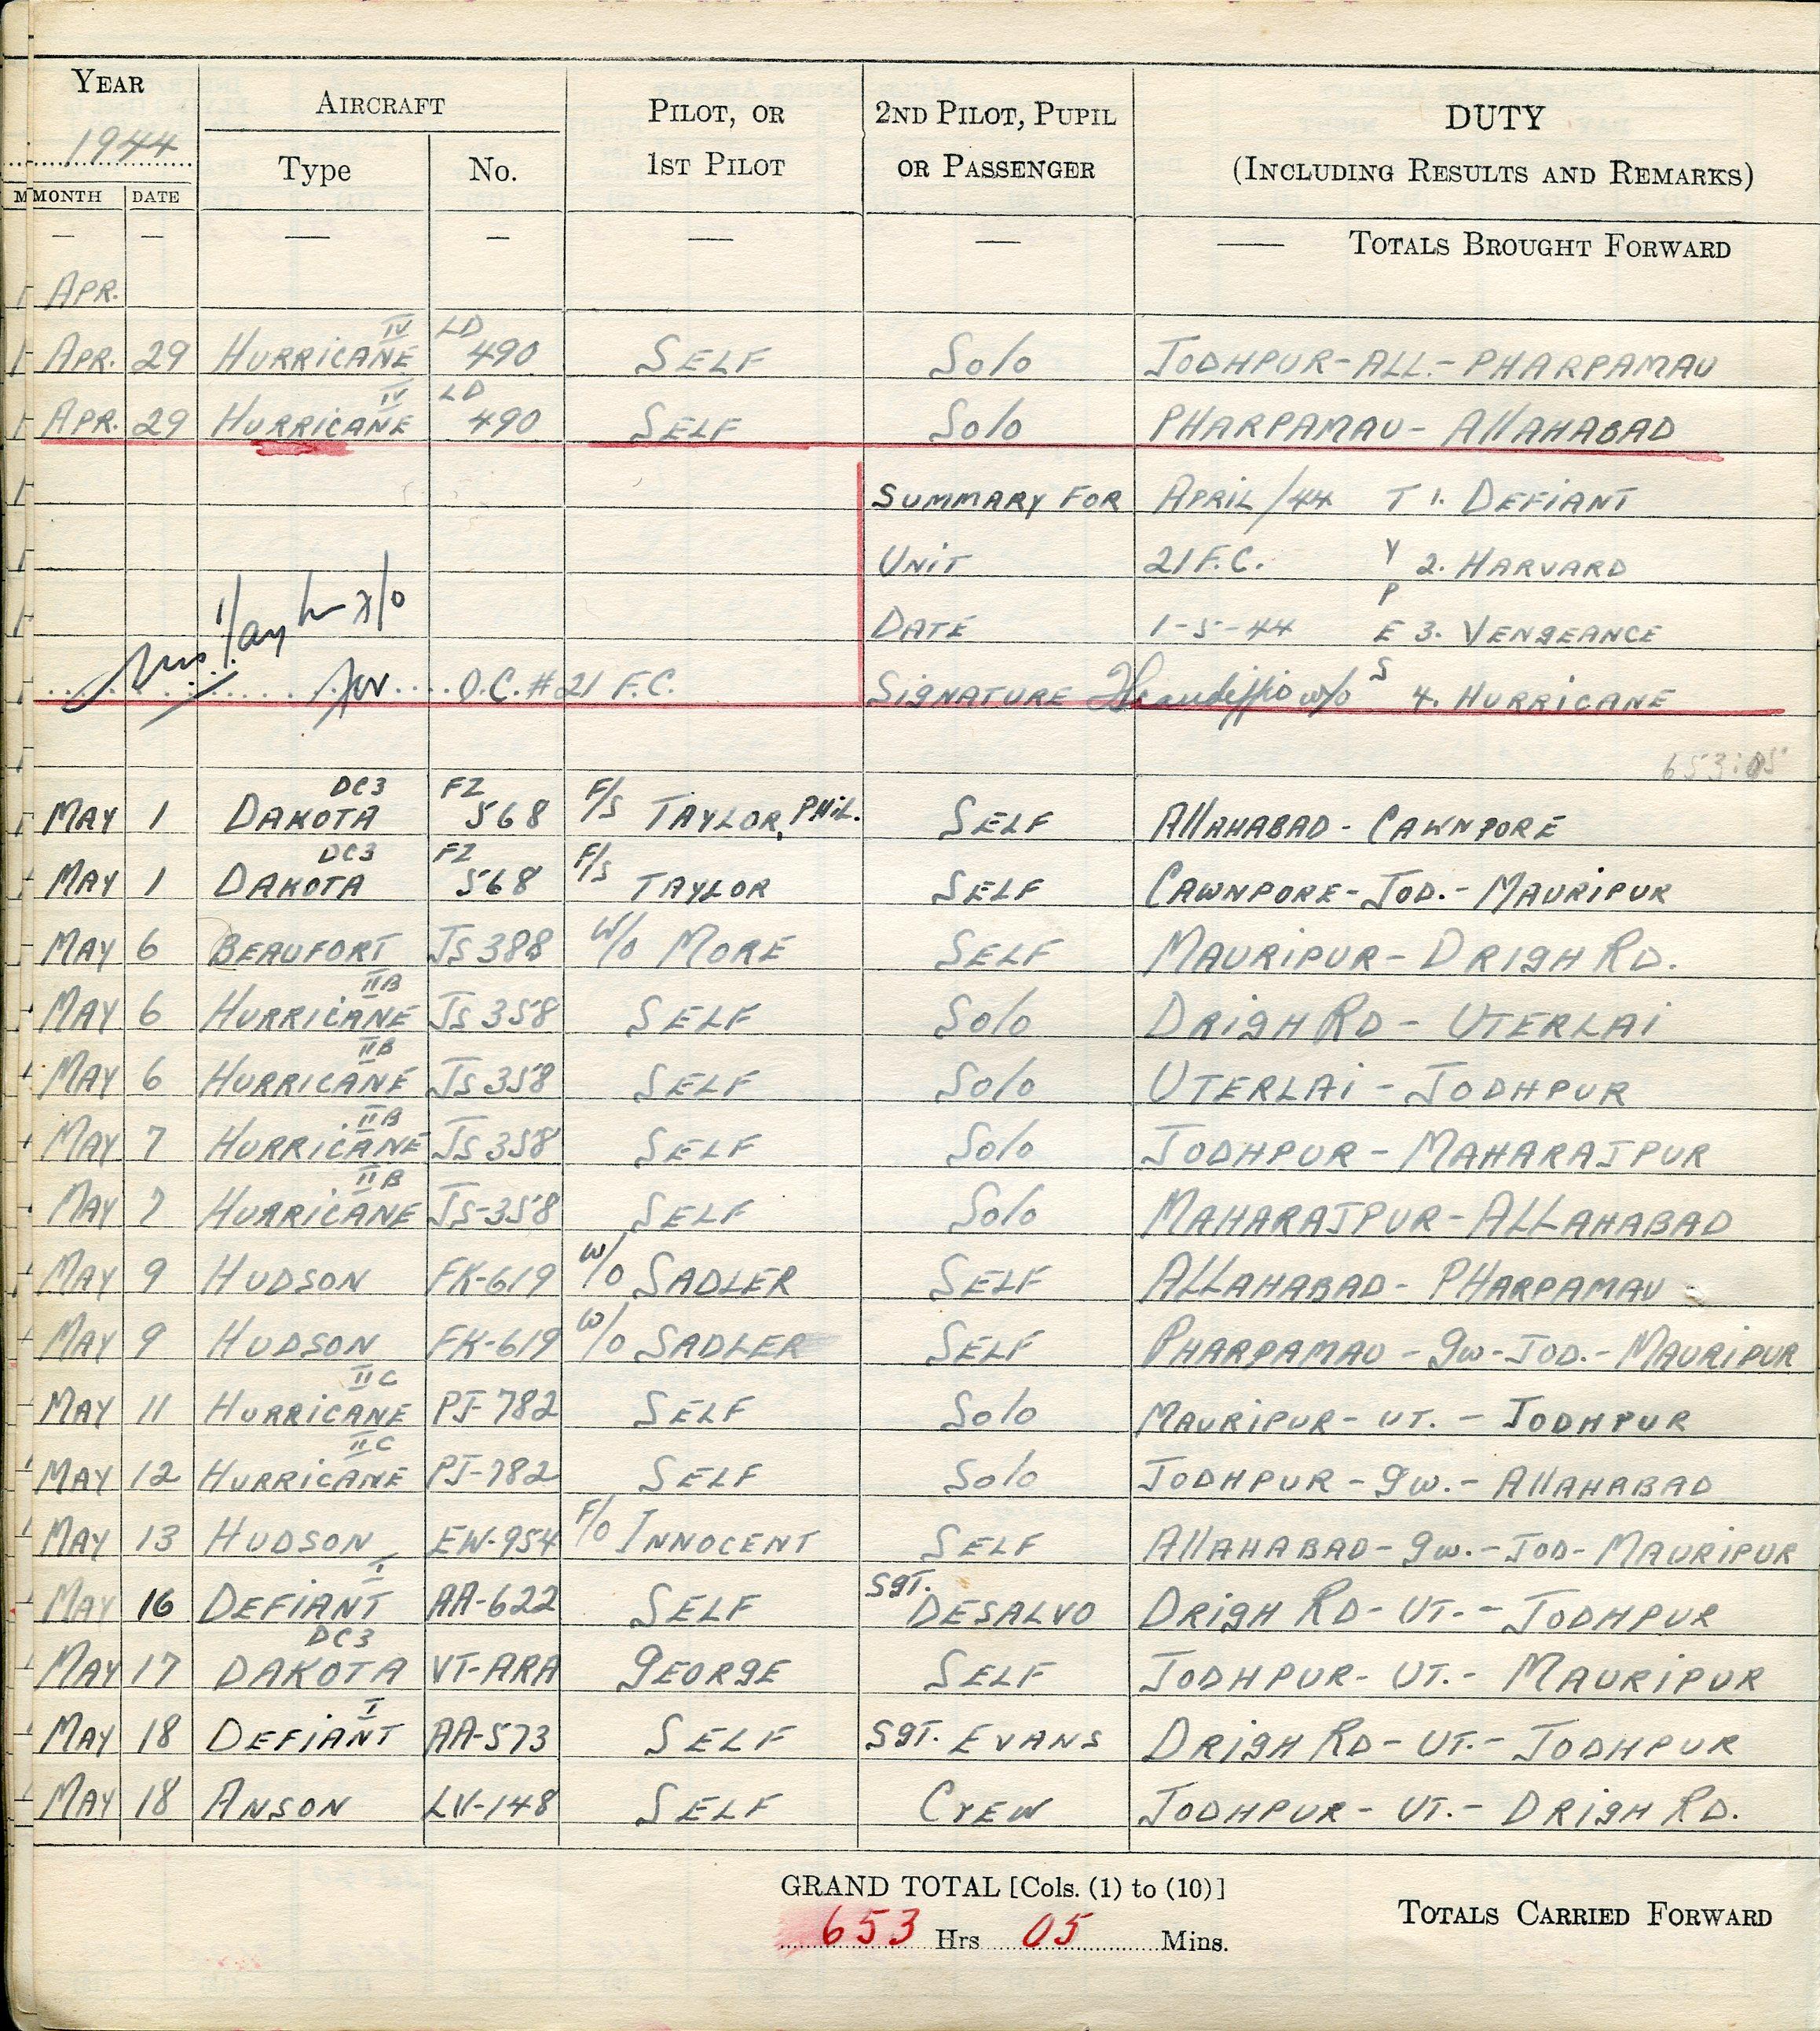 YEAR AIRCRAFT PILOT, OR 2ND PILOT, PUPIL DUTY
1944 Type No. 1ST PILOT OR PASSENGER (INCLUDING RESULTS AND REMARKS)
MONTH DATE
— — — — — — — TOTALS BROUGHT FORWARD
APR.
APR. 29 HURRICANE IV LD 490 SELF Solo JODHPUR-ALL.-PHARPAMAU
APR. 29 HURRICANE IV LD 490 SELF Solo PHARPAMAU-AllAHABAD
SUMMARY FOR APRIL/44 T 1. DEFIANT
UNIT 21 F.C. Y 2. HARVARD
P
DATE 1-5-44 E 3. VENGEANCE
for O.C. # 21 F.C. SIGNATURE W/O S 4. HURRICANE
653:05
MAY 1 DAKOTA DC3 FZ 568 F/S TAYLOR, PHIL. SELF AllAHABAD-CAWNPORE
MAY 1 DAKOTA DC3 FZ 568 F/S TAYLOR SELF CAWNPORE-JOD.-MAURIPUR
MAY 6 BEAUFORT JS 388 W/O MORE SELF MAURIPUR-DRIGH RD.
MAY 6 HURRICANE IIB JS 358 SELF Solo DRIGH RD-UTERLAI
MAY 6 HURRICANE IIB JS 358 SELF Solo UTERLAI-JODHPUR
MAY 7 HURRICANE IIB JS 358 SELF Solo JODHPUR-MAHARAJPUR
MAY 7 HURRICANE IIB JS-358 SELF Solo MAHARAJPUR-ALLAHABAD
MAY 9 HUDSON FK-619 W/O SADLER SELF ALLAHABAD-PHARPAMAU
MAY 9 HUDSON FK-619 W/O SADLER SELF PHARPAMAU-GW-JOD.-MAURIPUR
MAY 11 HURRICANE IIC PJ-782 SELF Solo MAURIPUR-UT.-JODHPUR
MAY 12 HURRICANE IIC PJ-782 SELF Solo JODHPUR-GW.-AllAHABAD
MAY 13 HUDSON EW-954 F/O INNOCENT SELF AllAHABAD-GW.-JOD-MAURIPUR
MAY 16 DEFIANT I AA-622 SELF SGT. DESALVO DRIGH RD-UT.-JODHPUR
MAY 17 DAKOTA DC3 VT-ARA GEORGE SELF JODHPUR-UT.-MAURIPUR
MAY 18 DEFIANT I AA-573 SELF SGT. EVANS DRIGH RD-UT.-JODHPUR
MAY 18 ANSON LV-148 SELF CREW JODHPUR-UT.-DRIGH RD.
GRAND TOTAL [Cols. (1) to (10)]
653 Hrs 05 Mins.
TOTALS CARRIED FORWARD